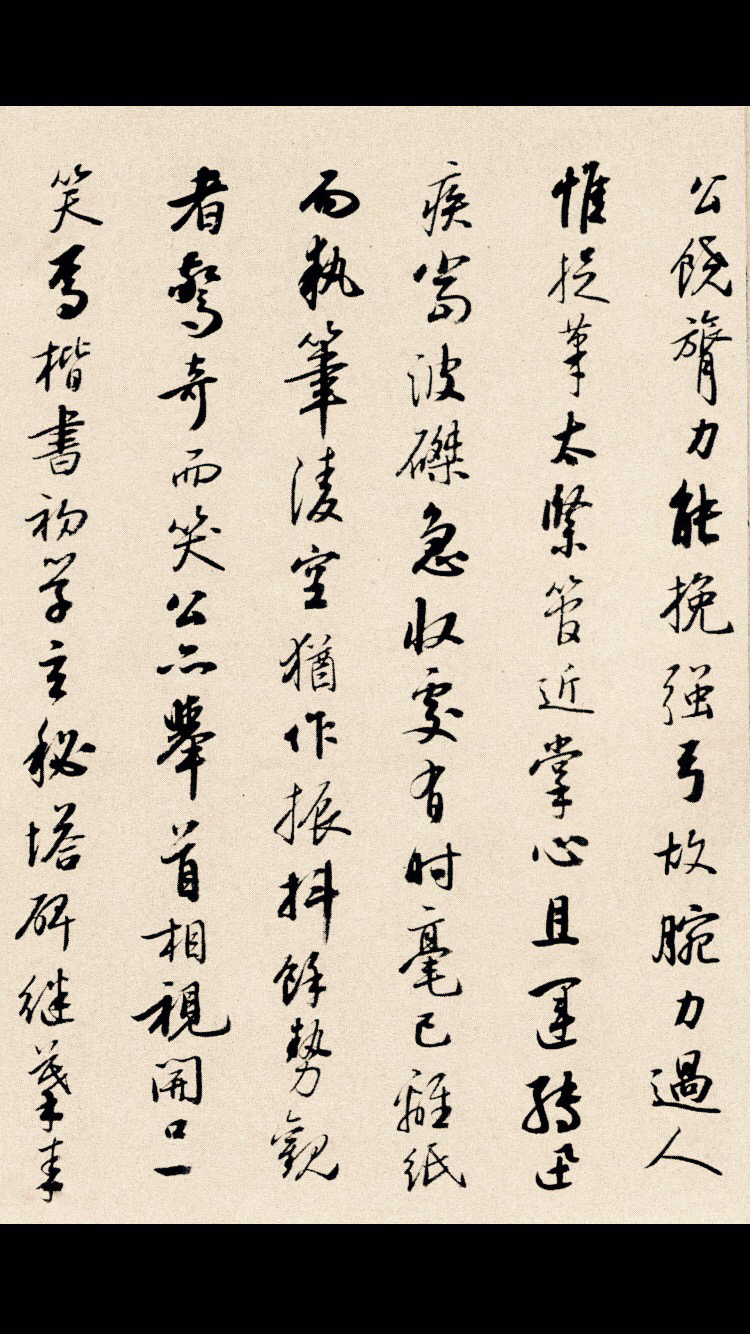 公饒膂力能挽强弓故腕力過人
惟捉筆太緊管近掌心且運轉迅
疾當波磔急收處有時毫已離紙
而執筆淩空猶作振抖餘勢觀
者驚奇而笑公亦舉首相視開口一
笑焉楷書初学玄秘塔碑继摹李